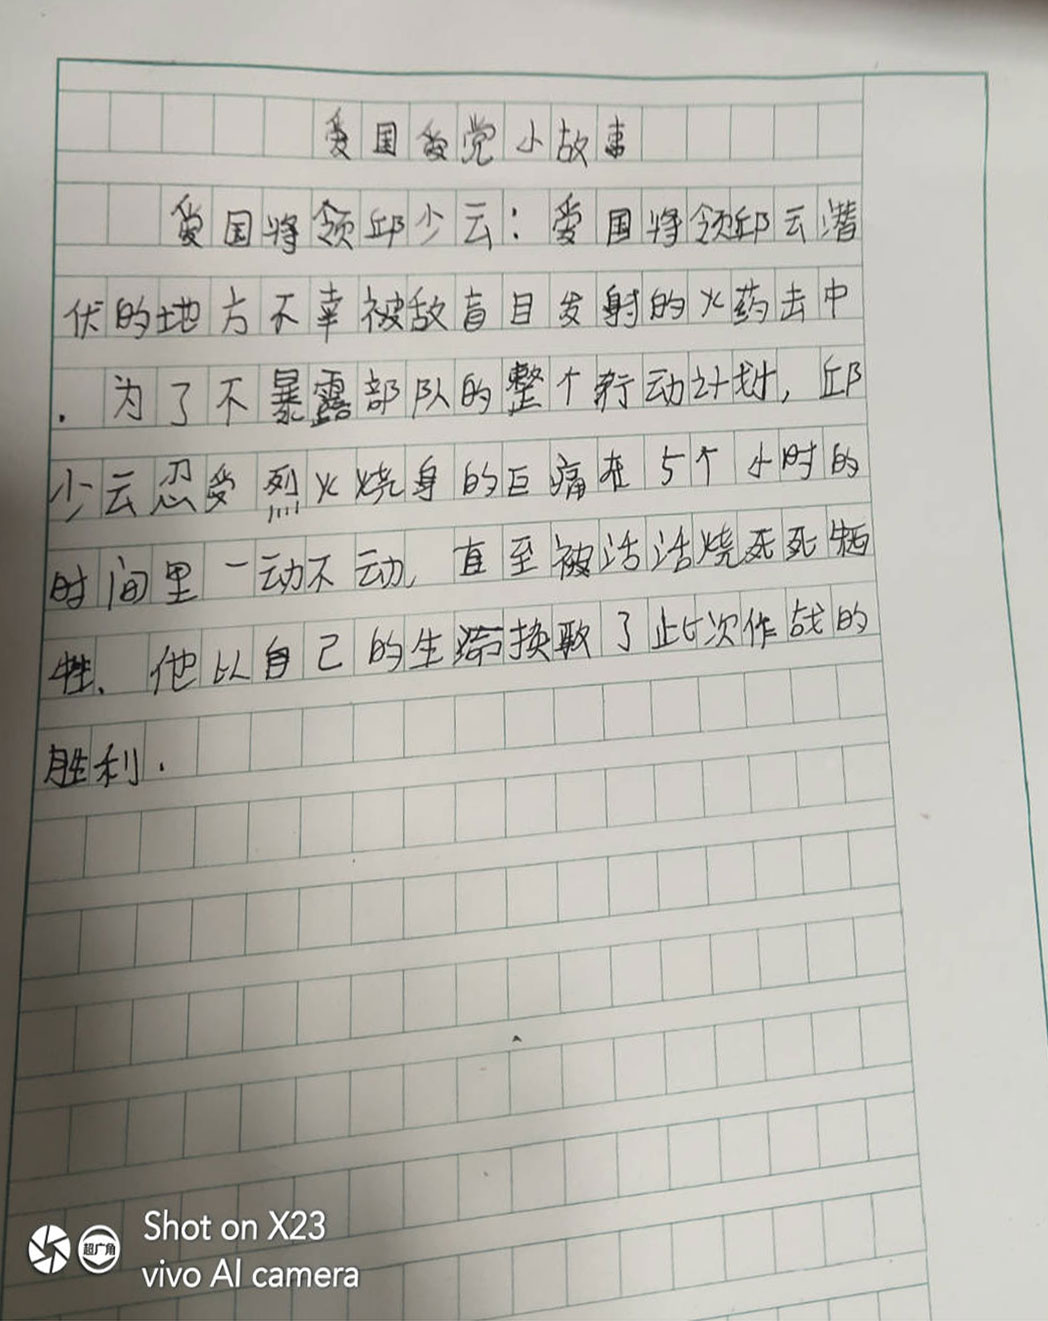 爱国爱党小故事
爱国将领邱少云：爱国将领邱云潜
伏的地方不幸被敌盲目发射的火药击中
.为了不暴露部队的整个行动计划，邱
少云忍受烈火烧身的巨痛在5个小时的
时间里一动不动，直至被活活烧死死牺
牲、他以自己的生命换取了此次作战的
胜利.
超广角
Shot on X23
vivo AI camera